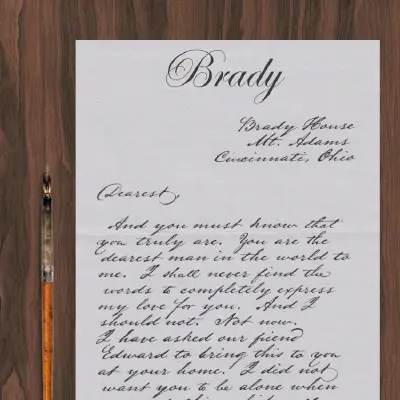 Brady
Brady House
Mt. Adams
Cincinnati, Ohio
Dearest,
And you must know that
you truly are. You are the
dearest man in the world to
me. I shall never find the
words to completely express
my love for you. And I
should not. Not now.
I have asked our friend
Edward to bring this to you
at your home. I did not
want you to be alone when